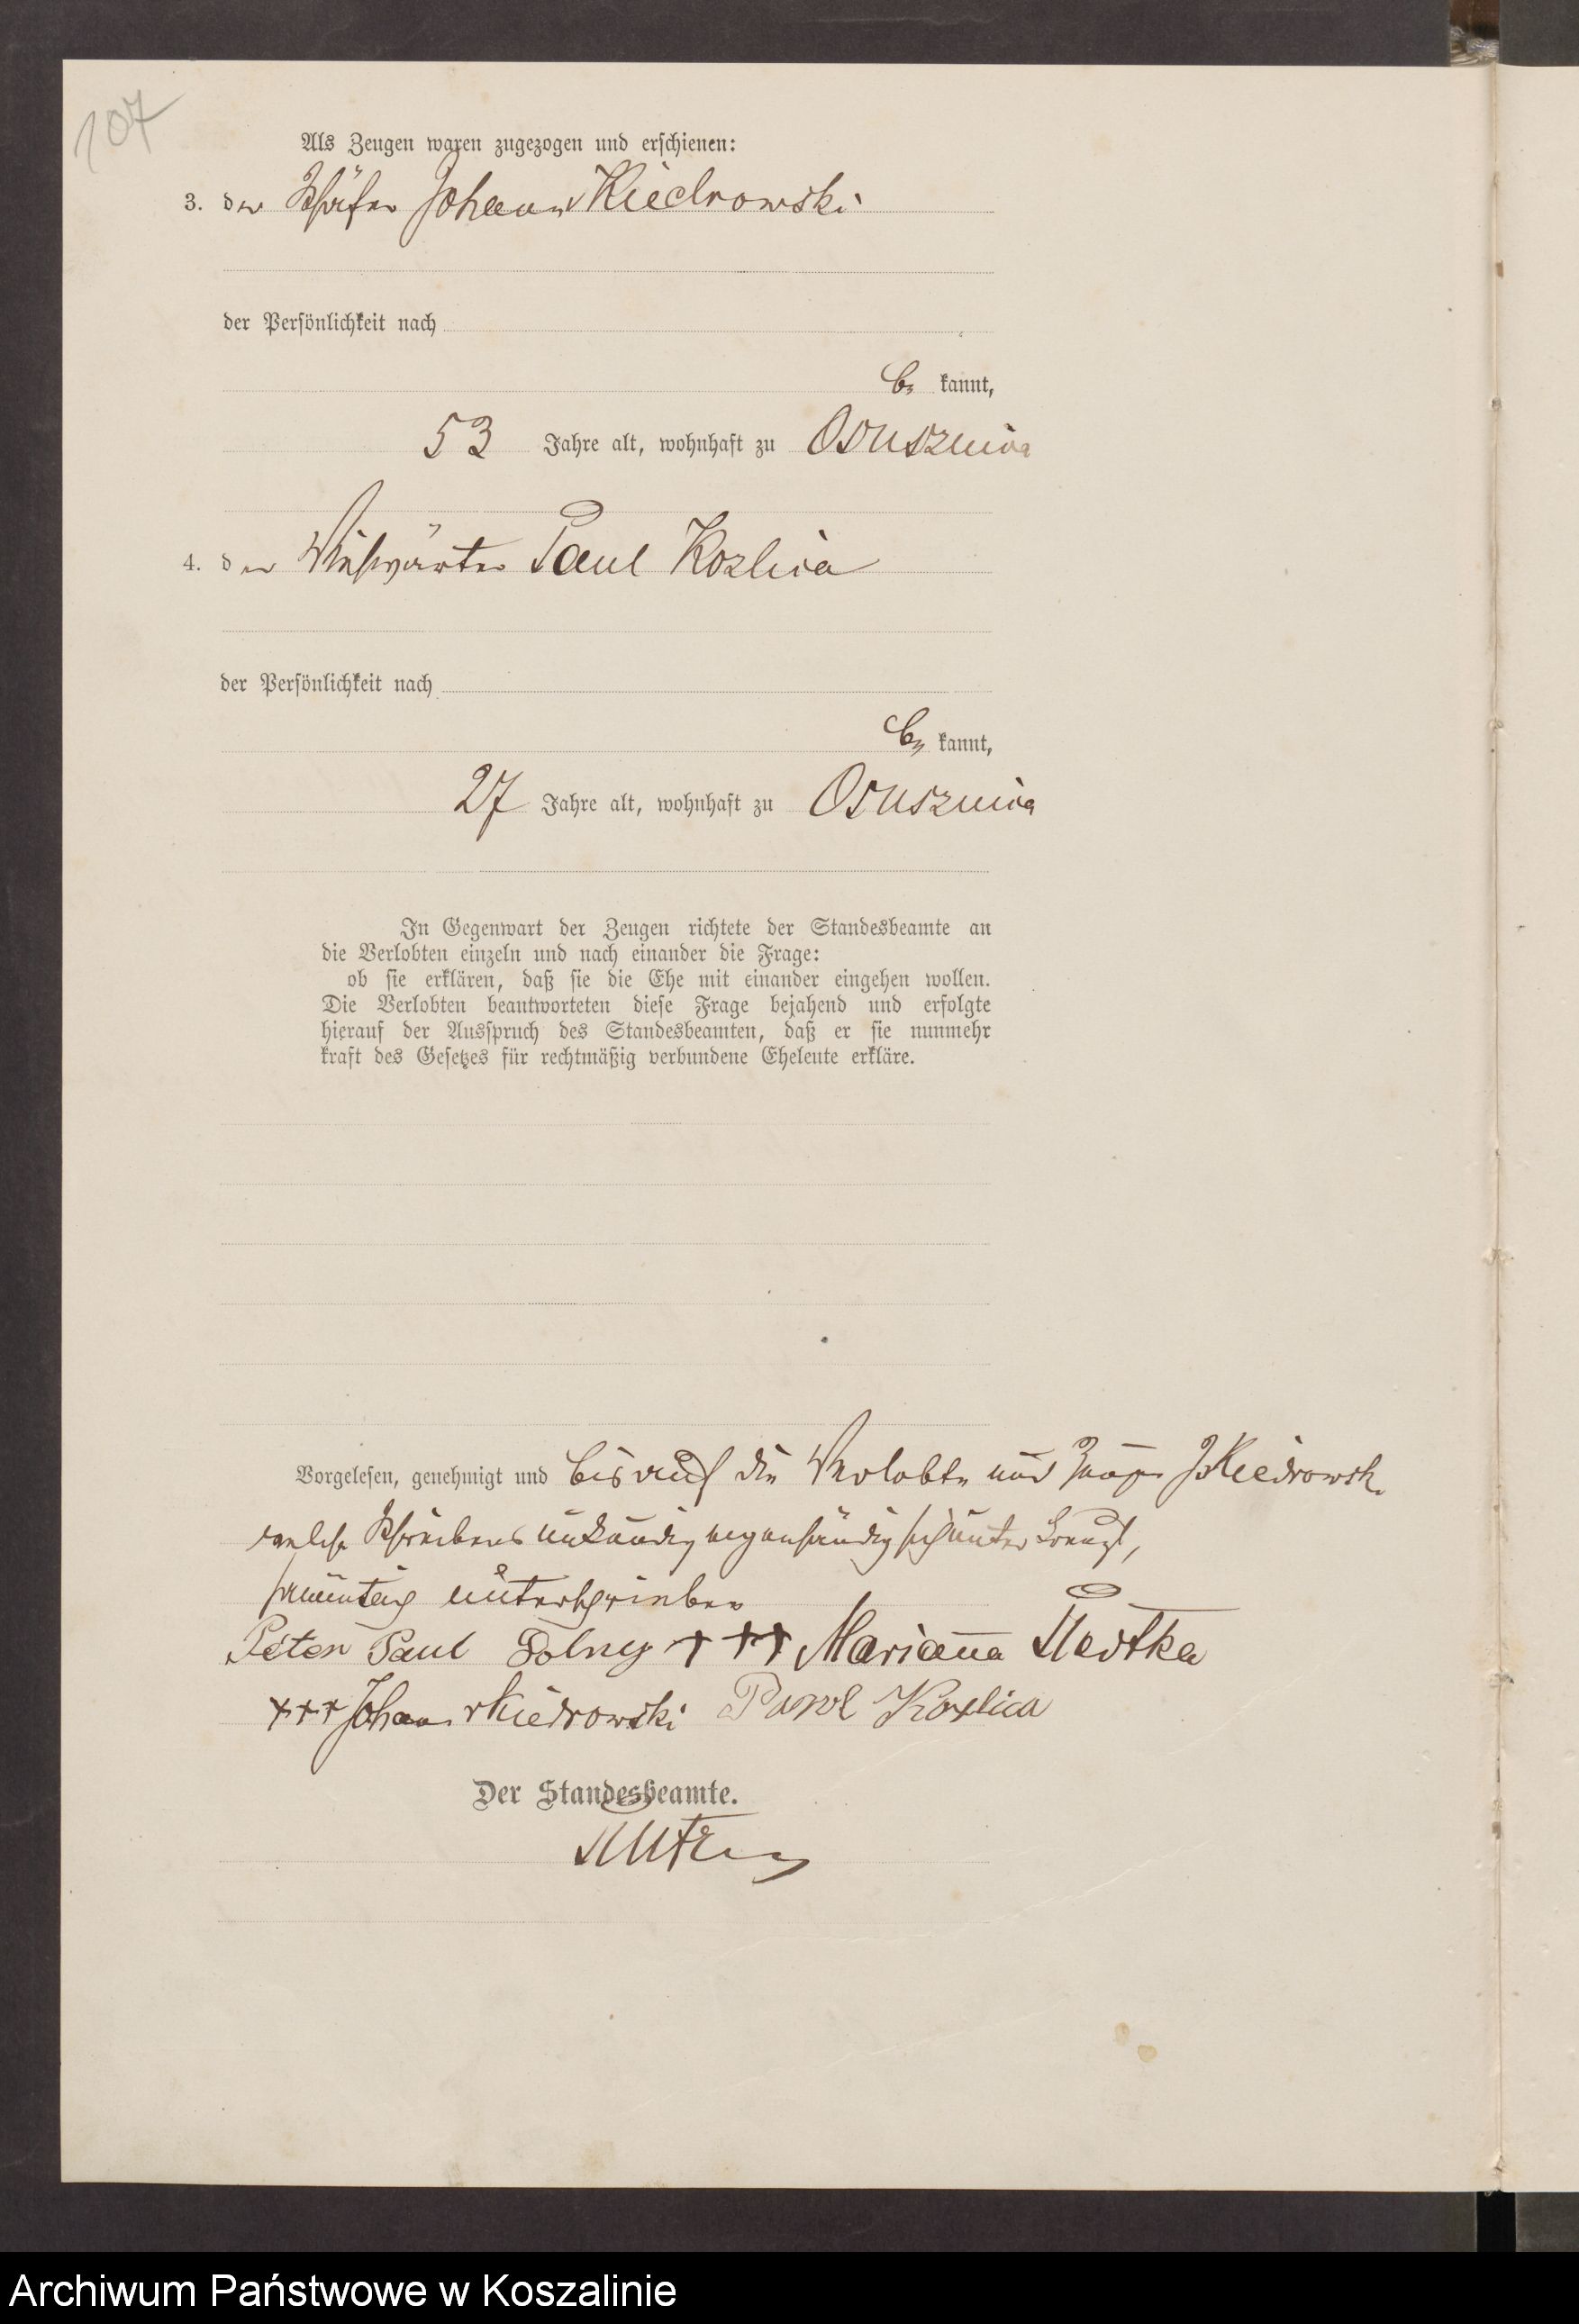 107
Als Zeugen waren zugezogen und erschienen:
3. der Schäfer Johann Kiedrowski
der Persönlichkeit nach
be kannt,
53 Jahre alt, wohnhaft zu Osusznica
4. der Viehwärter Paul Kozlica
der Persönlichkeit nach
be kannt,
27 Jahre alt, wohnhaft zu Osusznica
In Gegenwart der Zeugen richtete der Standesbeamte an
die Verlobten einzeln und nach einander die Frage:
ob sie erklären, daß sie die Ehe mit einander eingehen wollen.
Die Verlobten beantworteten diese Frage bejahend und erfolgte
hierauf der Ausspruch des Standesbeamten, daß er sie nunmehr
kraft des Gesetzes für rechtmäßig verbundene Eheleute erkläre.
Vorgelesen, genehmigt und bis auf die Verlobte und Zeuge J Kiedrowski
welche Schreibens unkundig eigenhändig sich unterkreuzt,
unterschrieben
Peter Paul Dolny +++ Marianna
+++ Johann v Kiedrowski Paul Kozlica
Der Standesbeamte.
Archiwum Państwowe w Koszalinie